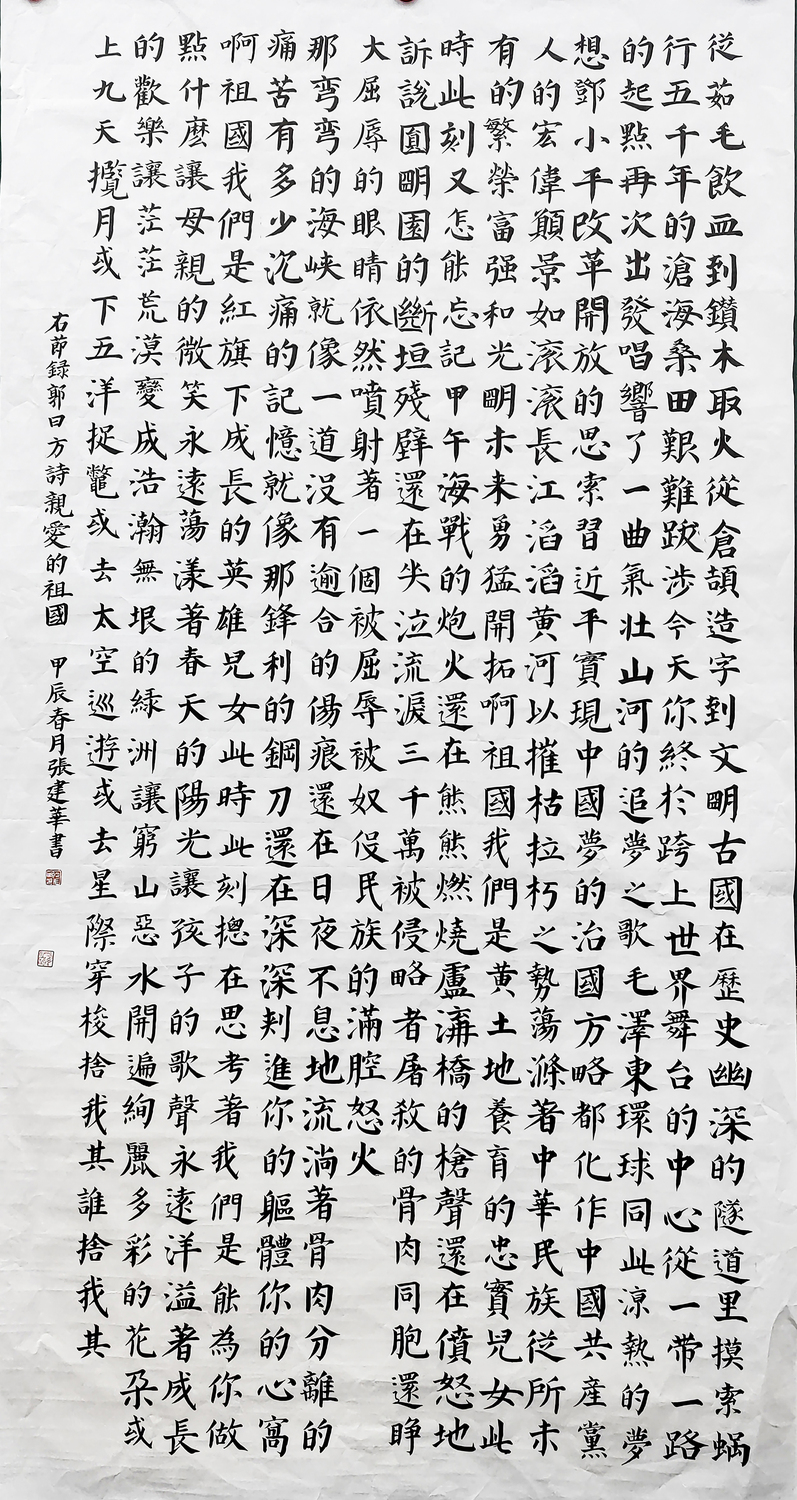 從茹毛飲血到鑽木取火從倉頡造字到文明古國在歷史幽深的隧道里摸索蝸
行五千年的滄海桑田艱難跋涉今天你終於跨上世界舞台的中心從一帶一路
的起點再次出發唱響了一曲氣壯山河的追夢之歌毛澤東環球同此涼熱的夢
想鄧小平改革開放的思索習近平實現中國夢的治國方略都化作中國共產黨
人的宏偉願景如滾滾長江滔滔黃河以摧枯拉朽之勢蕩滌著中華民族從所未
有的繁榮富强和光明未来勇猛開拓啊祖國我們是黃土地養育的忠實兒女此
時此刻又怎能忘記甲午海戰的炮火還在熊熊燃燒盧溝橋的槍聲還在憤怒地
訴說圓明園的斷垣殘壁還在尖泣流淚三千萬被侵略者屠殺的骨肉同胞還睜
大屈辱的眼睛依然噴射著一個被屈辱被奴役民族的滿腔怒火
那彎彎的海峽就像一道没有逾合的傷痕還在日夜不息地流淌著骨肉分離的
痛苦有多少沉痛的記憶就像那鋒利的鋼刀還在深深刺進你的軀體你的心窩
啊祖國我們是紅旗下成長的英雄兒女此時此刻總在思考著我們是能為你做
點什麽讓母親的微笑永遠蕩漾著春天的陽光讓孩子的歌聲永遠洋溢著成長
的歡樂讓茫茫荒漠變成浩瀚無垠的綠洲讓窮山惡水開遍絢麗多彩的花朵或
上九天攬月或下五洋捉鼈或去太空巡遊或去星際穿梭捨我其誰捨我其
右節録郭曰方詩親愛的祖國 甲辰春月張建華書